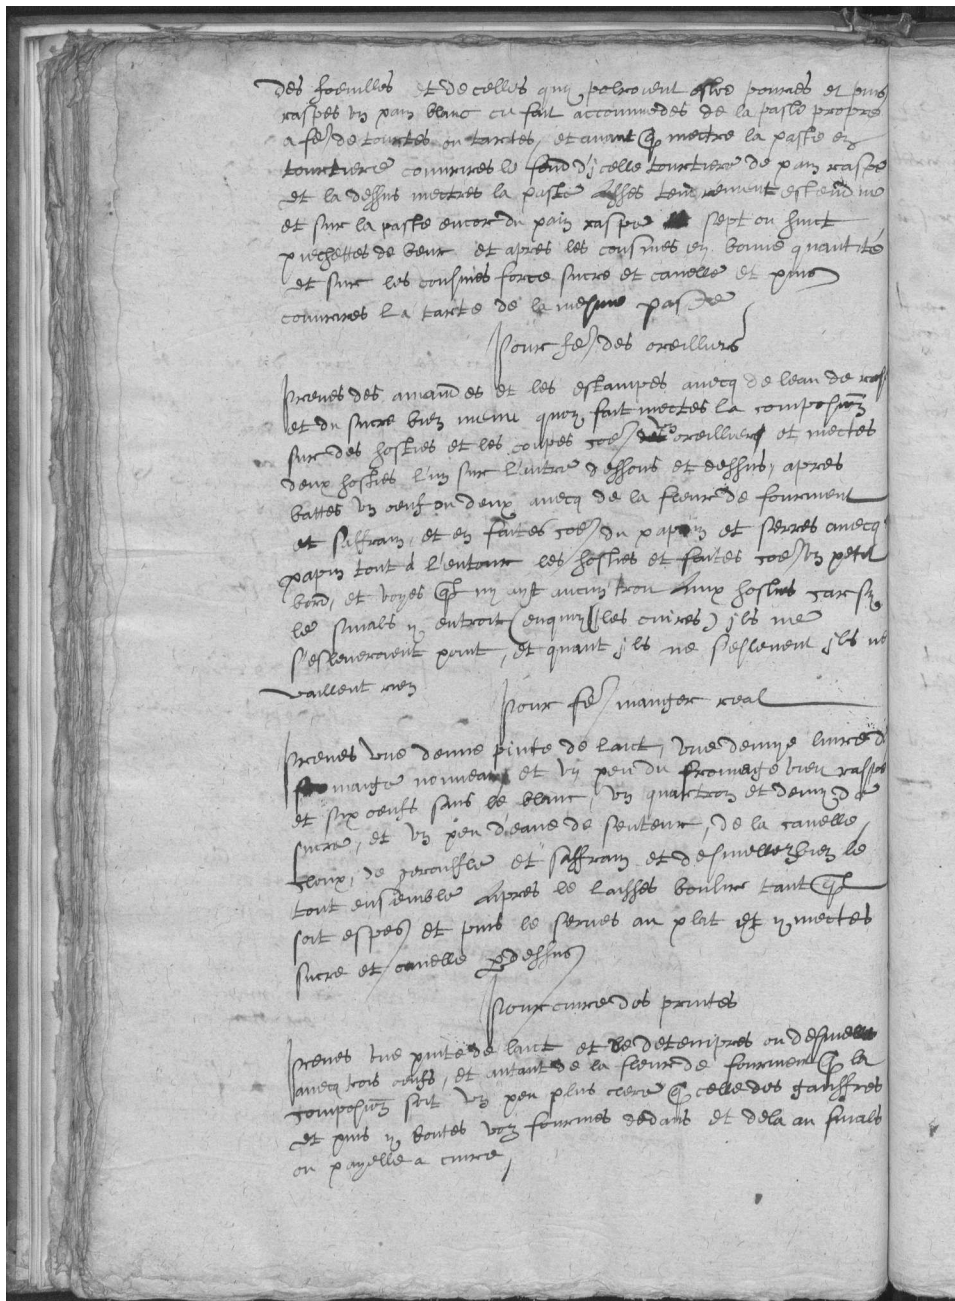 des foeuilles et de celles quy polroient estre pourries et puis
raspes un pain blanc cu fait accommodes de la paste propre
a fe͂ de tourtes ou tartes, et avant q̃ mectre la paste en
tourtiere couvrires le fond d'jcelle tourtiere de pain raspe
et la dessus mectres la paste asses tenrement estendue
et sur la paste encor du pain raspe sept ou huict
piechettes de beur et apres les cousines en bonne quantité
et sur les cousines force sucre et canelle et puis
couvrires la tarte de la mesme paste
Pour fe͂ des oreilliers
Prenes des amandes et les estampes avecq de leau de rose
et du sucre bien menu quon fait mectes la composition
sur des hosties et les coupes coe͂ oreilliers et mectes
deux hosties l'un sur l'autre dessous et dessus, apres
battes un oeuf ou deux avecq de la fleur de fourment
et saffran, et en faites coe͂ du papin et serres avecq
papin tout a l'entour les hosties et faites coe͂ un petit
bord, et voyes q̃ ny ayt aucun trou aux hosties car sy
le sivals y entroit (en quoy les cuires) jls ne
s'esleveroient point, et quant jls ne s'eslevent jls ne
vaillent rien
Pour fe͂ manger real
Prenes une demie pinte de laict, une demye livre de
fromaige nouveau et un peu du fromaige vieu raspe
et six oeufs sans le blanc, un quartron et demy de
sucre, et un peu d'eaue de senteur, de la canelle,
cloux, de gerouffle et saffran et desmeller bien le
tout ensemble apres le laisses boulir tant q̃l
soit espes et puis le serves au plat et y mectes
sucre et canelle p̱dessus
Pour cuire des printes
Prenes une pinte de laict et le detempres ou desmelles
avecq trois oeufs, et autant de la fleur de fourment q̃ la
composition soit un peu plus clere q̃ celle des gauffres
et puis y boutes voz fourmes dedans et dela au sivals
ou payelle a cuire,